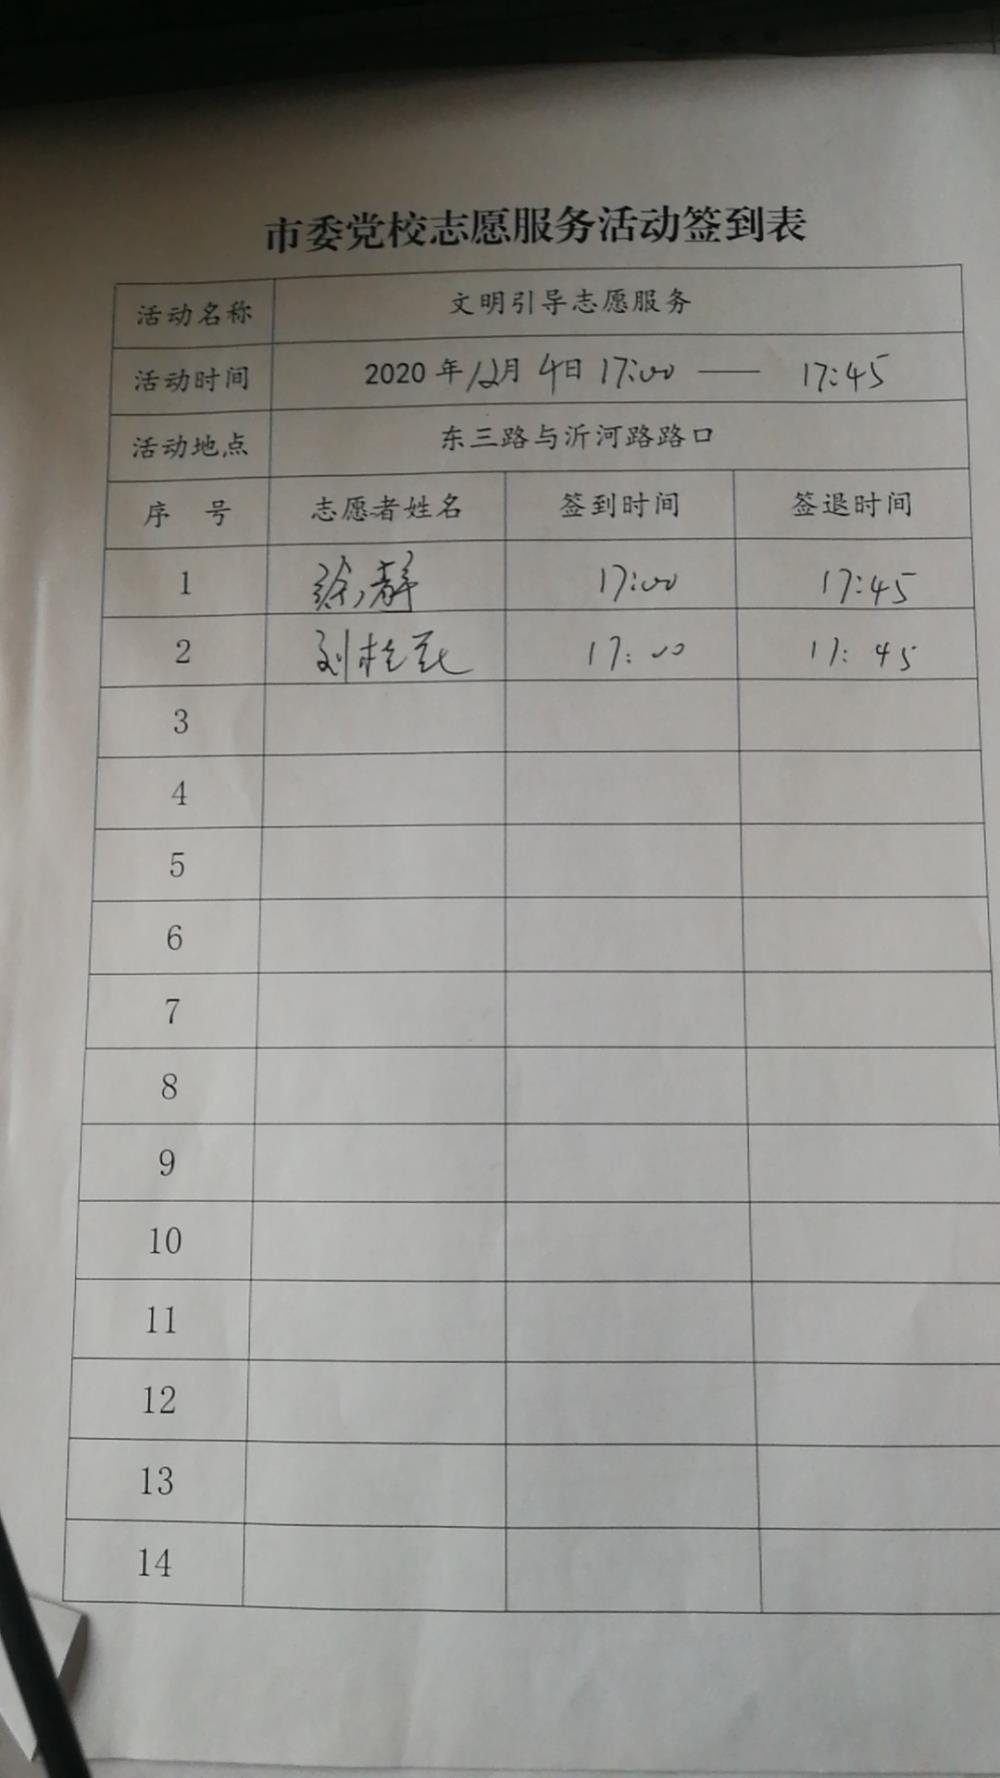 市委党校志愿服务活动签到表
活动名称 文明引导志愿服务
活动时间 2020年12月4日 17:00 —— 17:45
活动地点 东三路与沂河路路口
序 号 志愿者姓名 签到时间 签退时间
1 徐静 17:00 17:45
2 刘桂花 17:00 17:45
3
4
5
6
7
8
9
10
11
12
13
14